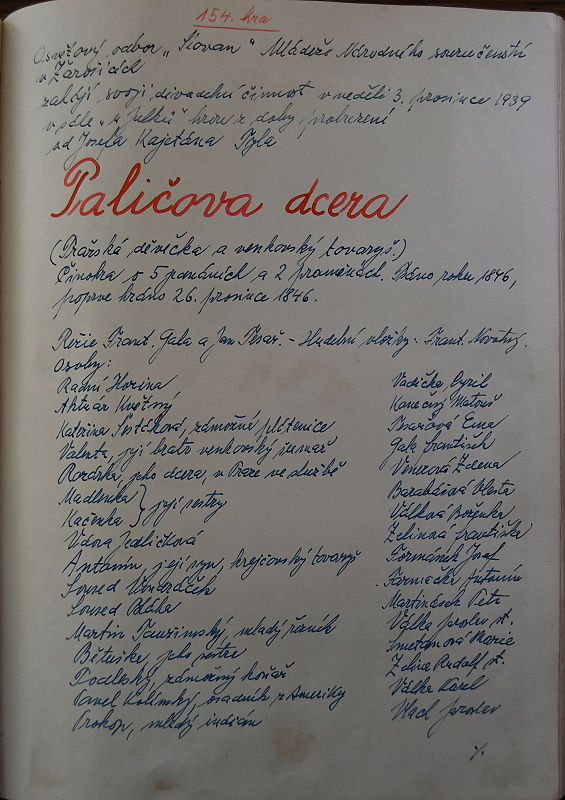 154. hra
Osvětový odbor „Slovan“ Mládeže Národního souručenství
v Žarošicích
zahájí svoji divadelní činnost v neděli 3. prosince 1939
v sále „u Jelků“ hrou z doby probuzení
od Josefa Kajetána Tyla
Paličova dcera
(Pražská děvečka a venkovský tovaryš.)
Činohra o 5 jednáních a 2 proměnách. Psáno roku 1846,
poprve hráno 26. prosince 1846.
Režie Frant. Gala a Jan Pesař. - Hudební vložky: Frant. Novotný.
Osoby:
Radní Horina Vadička Cyril
Aktuár Květený Konečný Matouš
Kateřina Šestáková, zámožná plátenice Ema
Valenta, její bratr venkovský Gala František
Rozárka, jeho dcera, v Praze ve službě Zdena
Madlenka } její sestry Vlasta
Kačenka Válková Boženka
Vdova Jedličková Zelinová Františka
Antonín, její syn, krejčovský tovaryš Formánek Josef
Soused Vondráček Antonín
Soused Bláha Martinásek Petr
Martin Taurimský, mladý řezník Válka Jaroslav st.
Bětuška, jeho sestra Smetanová Marie
Podleský, zámožný kožař Zelina Rudolf st.
Pavel Kolínský, osadník z Ameriky Válka Karel
Prokop, mladý indián Vlach Jaroslav
./.